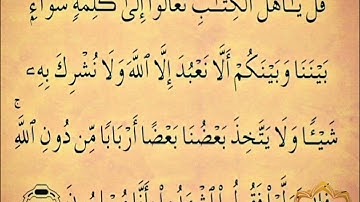 قُلْ يَـٰٓأَهْلَ ٱلْكِتَـٰبِ تَعَالَوْا۟ إِلَىٰ كَلِمَةٍ سَوَآءٍۭ
بَيْنَنَا وَبَيْنَكُمْ أَلَّا نَعْبُدَ إِلَّا ٱللَّهَ وَلَا نُشْرِكَ بِهِۦ
شَيْـًٔا وَلَا يَتَّخِذَ بَعْضُنَا بَعْضًا أَرْبَابًا مِّن دُونِ ٱللَّهِ ۚ